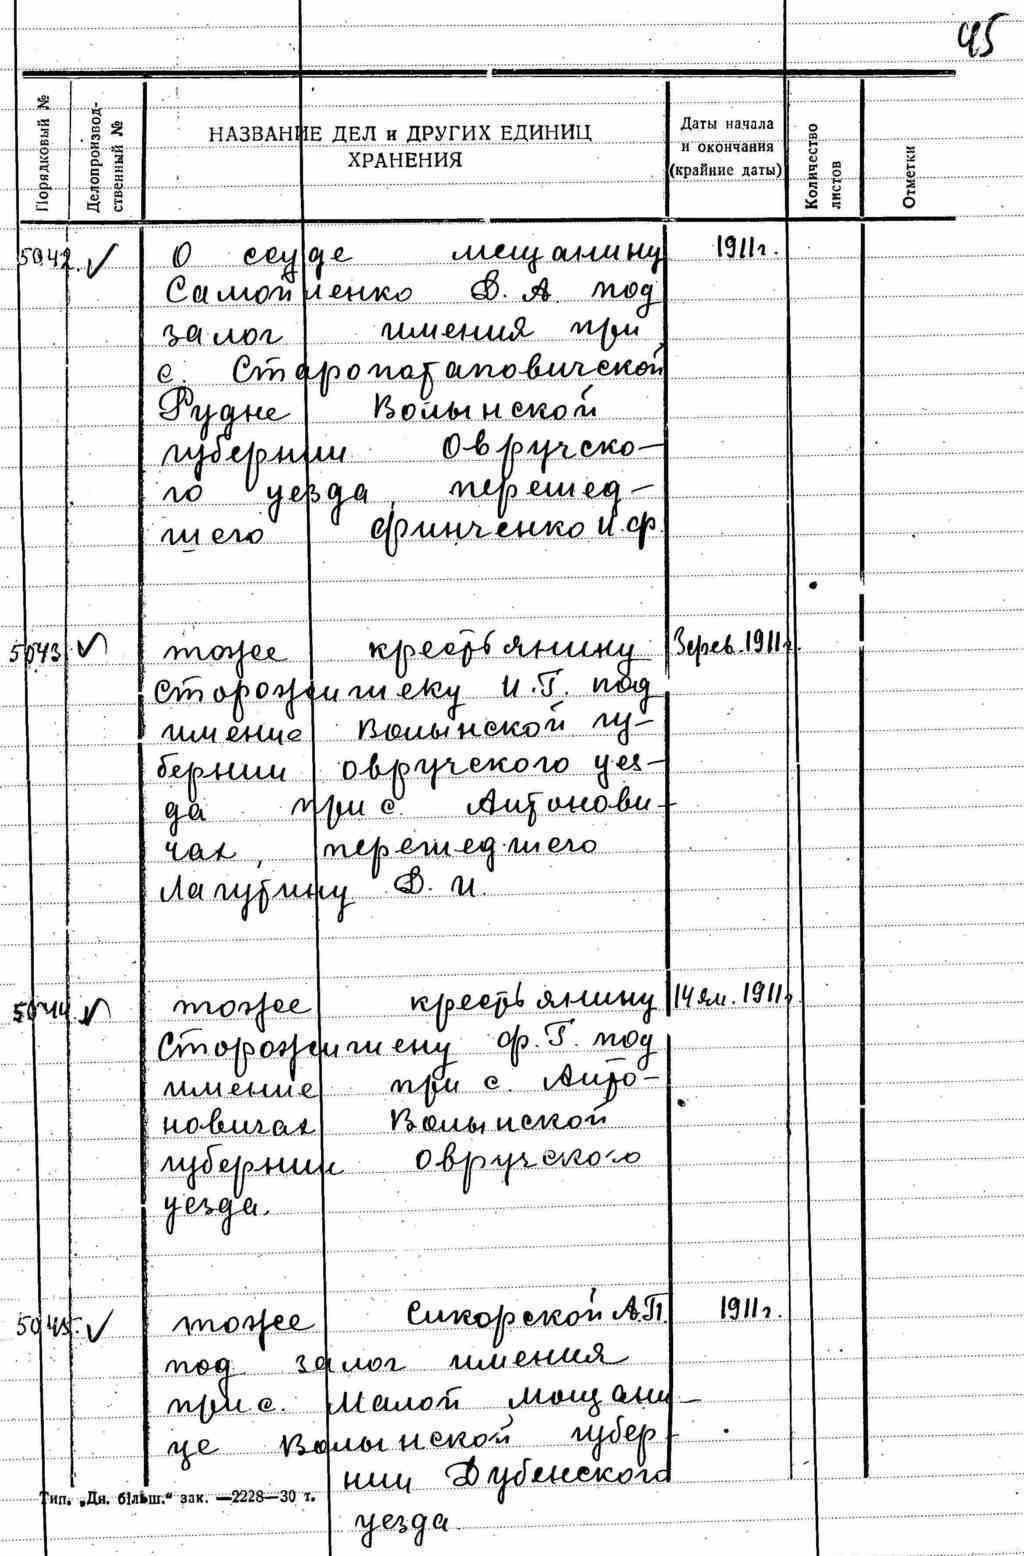 45
Порядковый №
Делопроизвод-
ственный №
НАЗВАНИЕ ДЕЛ и ДРУГИХ ЕДИНИЦ
ХРАНЕНИЯ
Даты начала
и окончания
(крайние даты)
Количество
листов
Отметки
5042. ✓ О ссуде мещанину 1911 г.
Самойленко В. А. под
залог имения при
с. Старопотаповичской
Рудне Волынской
губернии Овручско-
го уезда, перешед-
шего Финченко И. Ф.
5043 ✓ тоже крестьянину 3 фев. 1911 г.
Сторожишеку И. Г. под
имение Волынской гу-
бернии Овручского уез-
да при с. Антонови-
чах, перешедшего
Лагутину В. И.
5044. ✓ тоже крестьянину 14 ян. 1911 г.
Сторожишену Ф. Г. под
имение при с. Анто-
новичах Волынской
губернии Овручского
уезда.
5045. ✓ тоже Сикорской А. П. 1911 г.
под залог имения
при с. Малой Мощани-
це Волынской губер-
нии Дубенского
уезда.
Тип. „Дн. більш.“ зак. —2228—30 т.